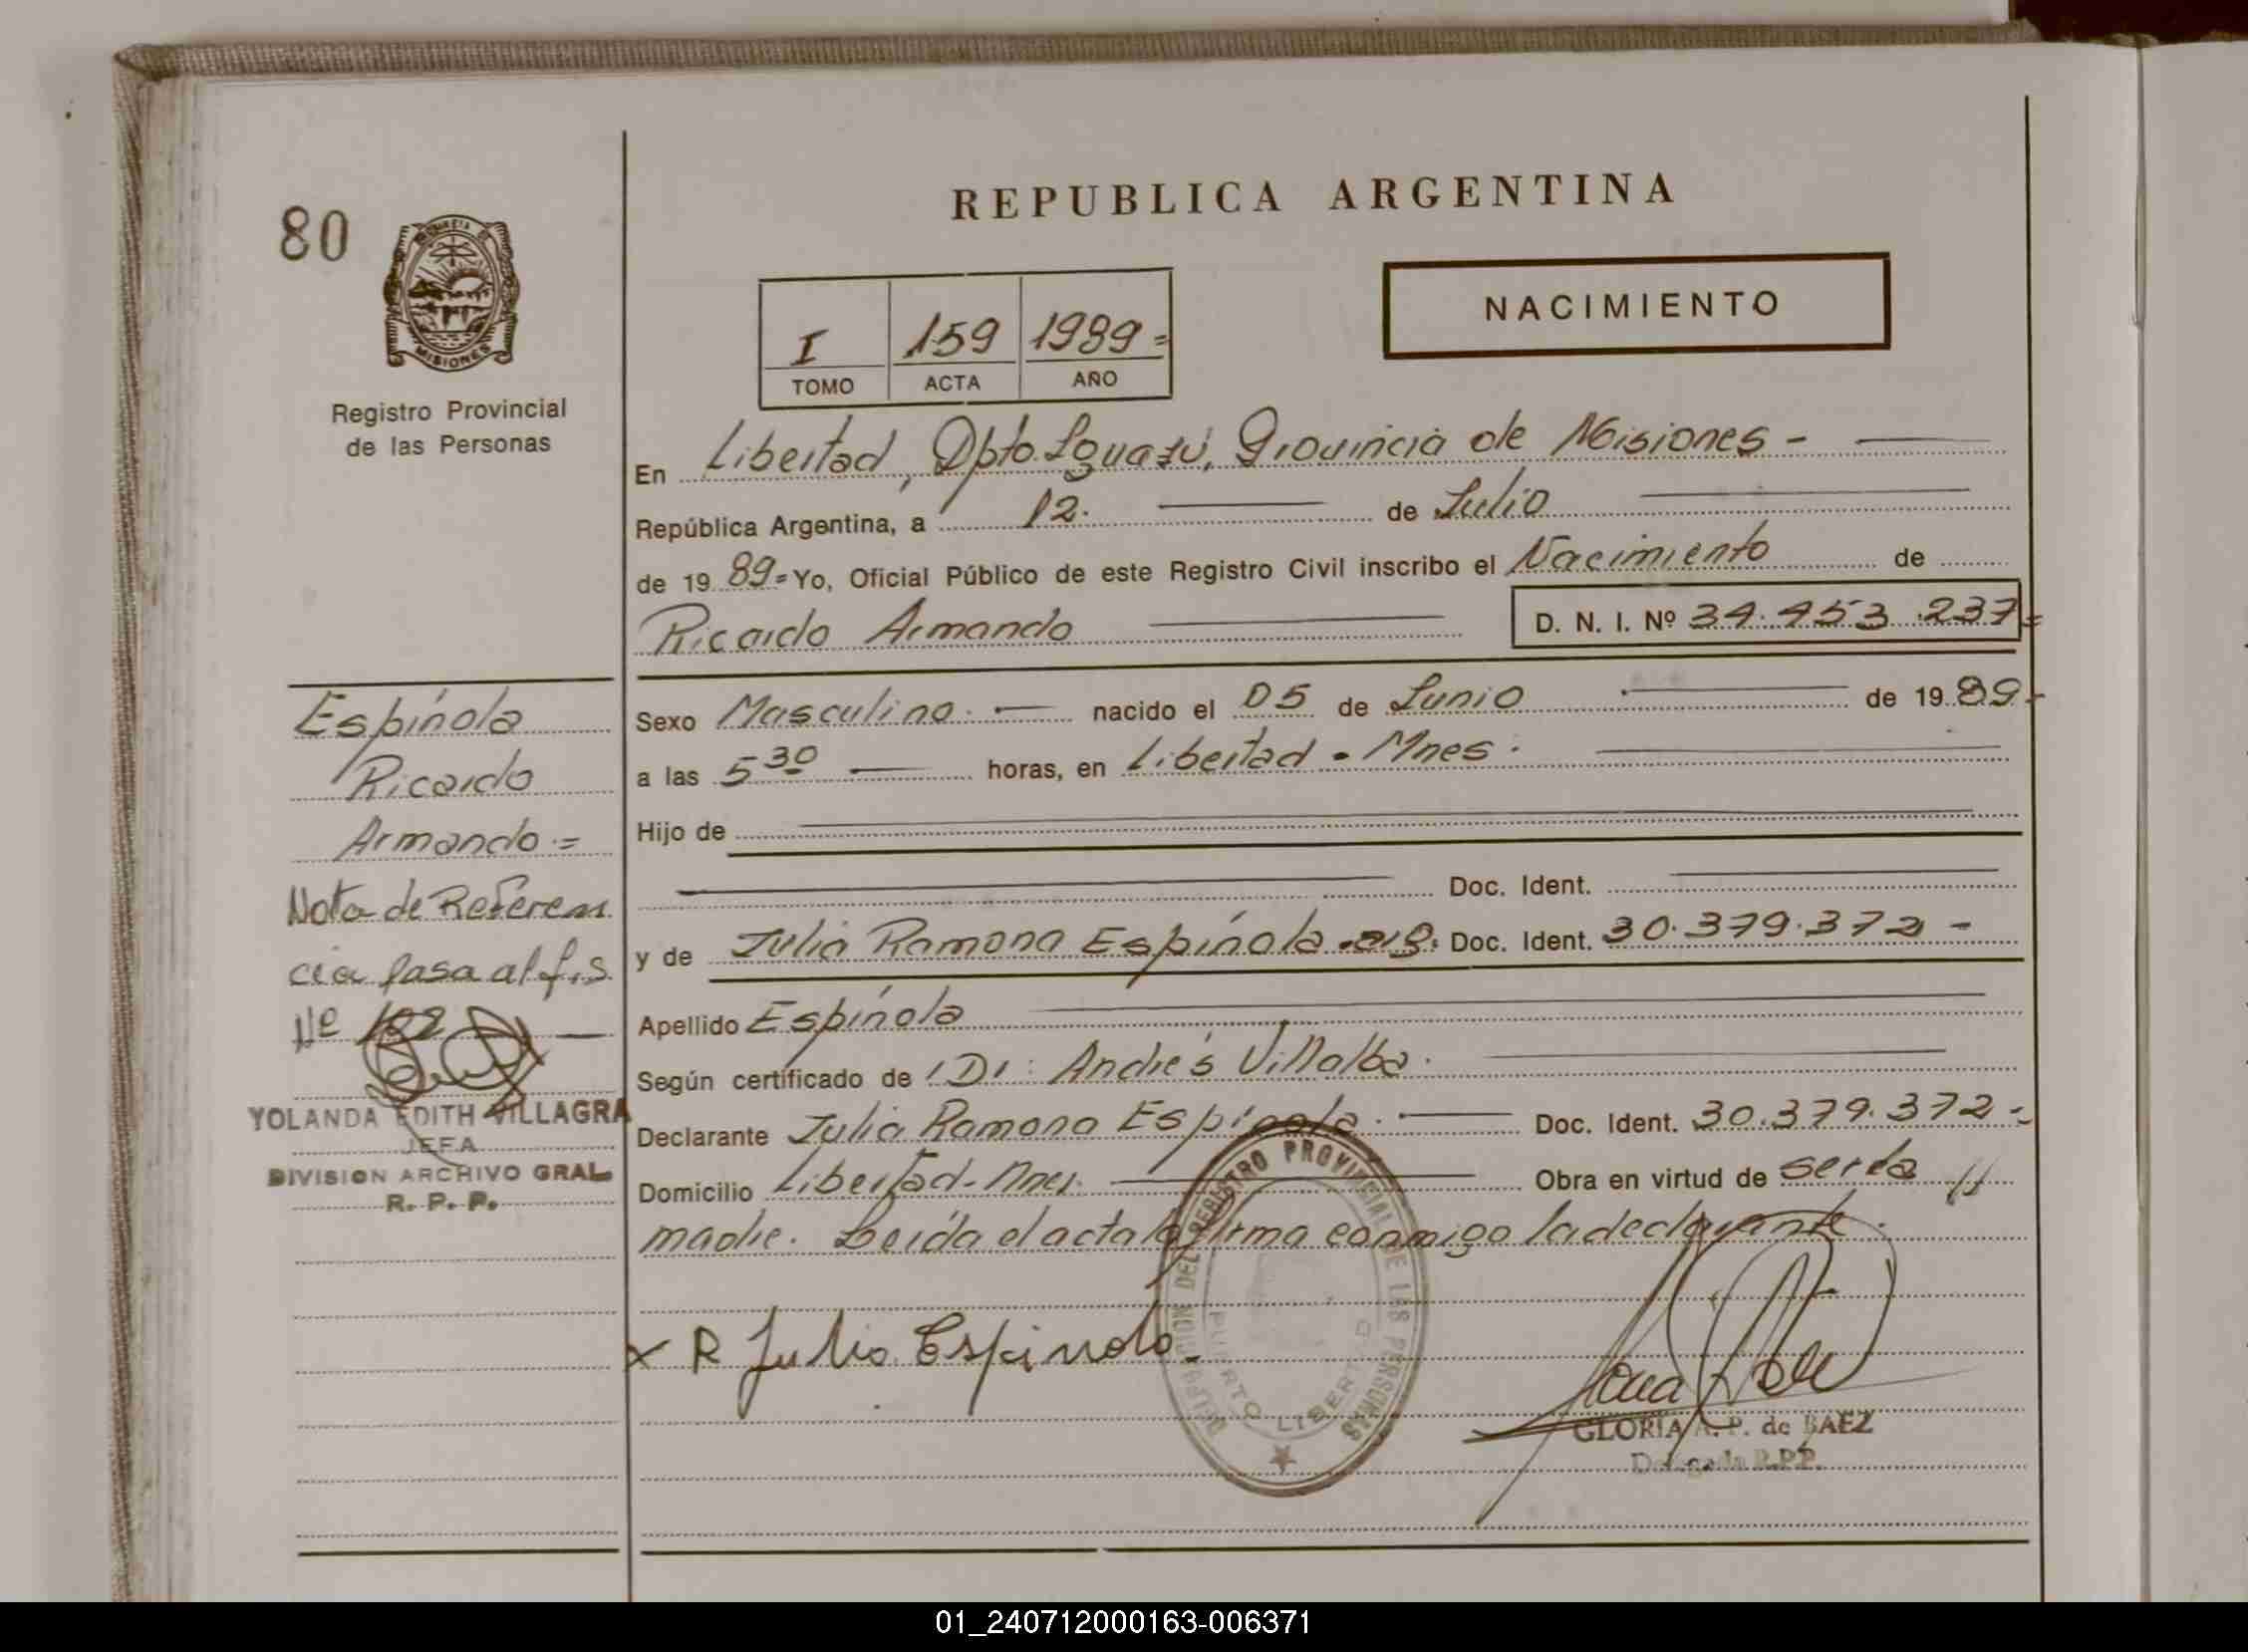 80
REPUBLICA ARGENTINA
NACIMIENTO
I 159 1989=
TOMO ACTA AÑO
MISIONES
Registro Provincial
de las Personas
En Libertad, Dpto. Iguazú, Provincia de Misiones -
República Argentina, a 12. de Julio
de 19 89= Yo, Oficial Público de este Registro Civil inscribo el Nacimiento de
Ricardo Armando D. N. I. Nº 34.453.237=
Sexo Masculino. nacido el 05 de Junio de 19 89-
a las 5 30 horas, en Libertad - Mnes.
Hijo de
Doc. Ident.
y de Julia Ramona Espínola arg. Doc. Ident. 30.379.372-
Apellido Espínola
Según certificado de Dr: Andrés Villalba.
Declarante Julia Ramona Espínola. Doc. Ident. 30.379.372-
Domicilio Libertad-Mnes. Obra en virtud de ser la //
madre. Leída el acta la firma conmigo la declarante.
x R Julia Espinola.
GLORIA A. P. de BAEZ
Delegada R.P.P.
DELEGACION DEL REGISTRO PROVINCIAL DE LAS PERSONAS
PUERTO LIBERTAD
Espínola
Ricardo
Armando=
Nota de Referen
cia pasa al f.s.
Nº 102
YOLANDA EDITH VILLAGRA
JEFA
DIVISION ARCHIVO GRAL.
R. P. P.
01_240712000163-006371